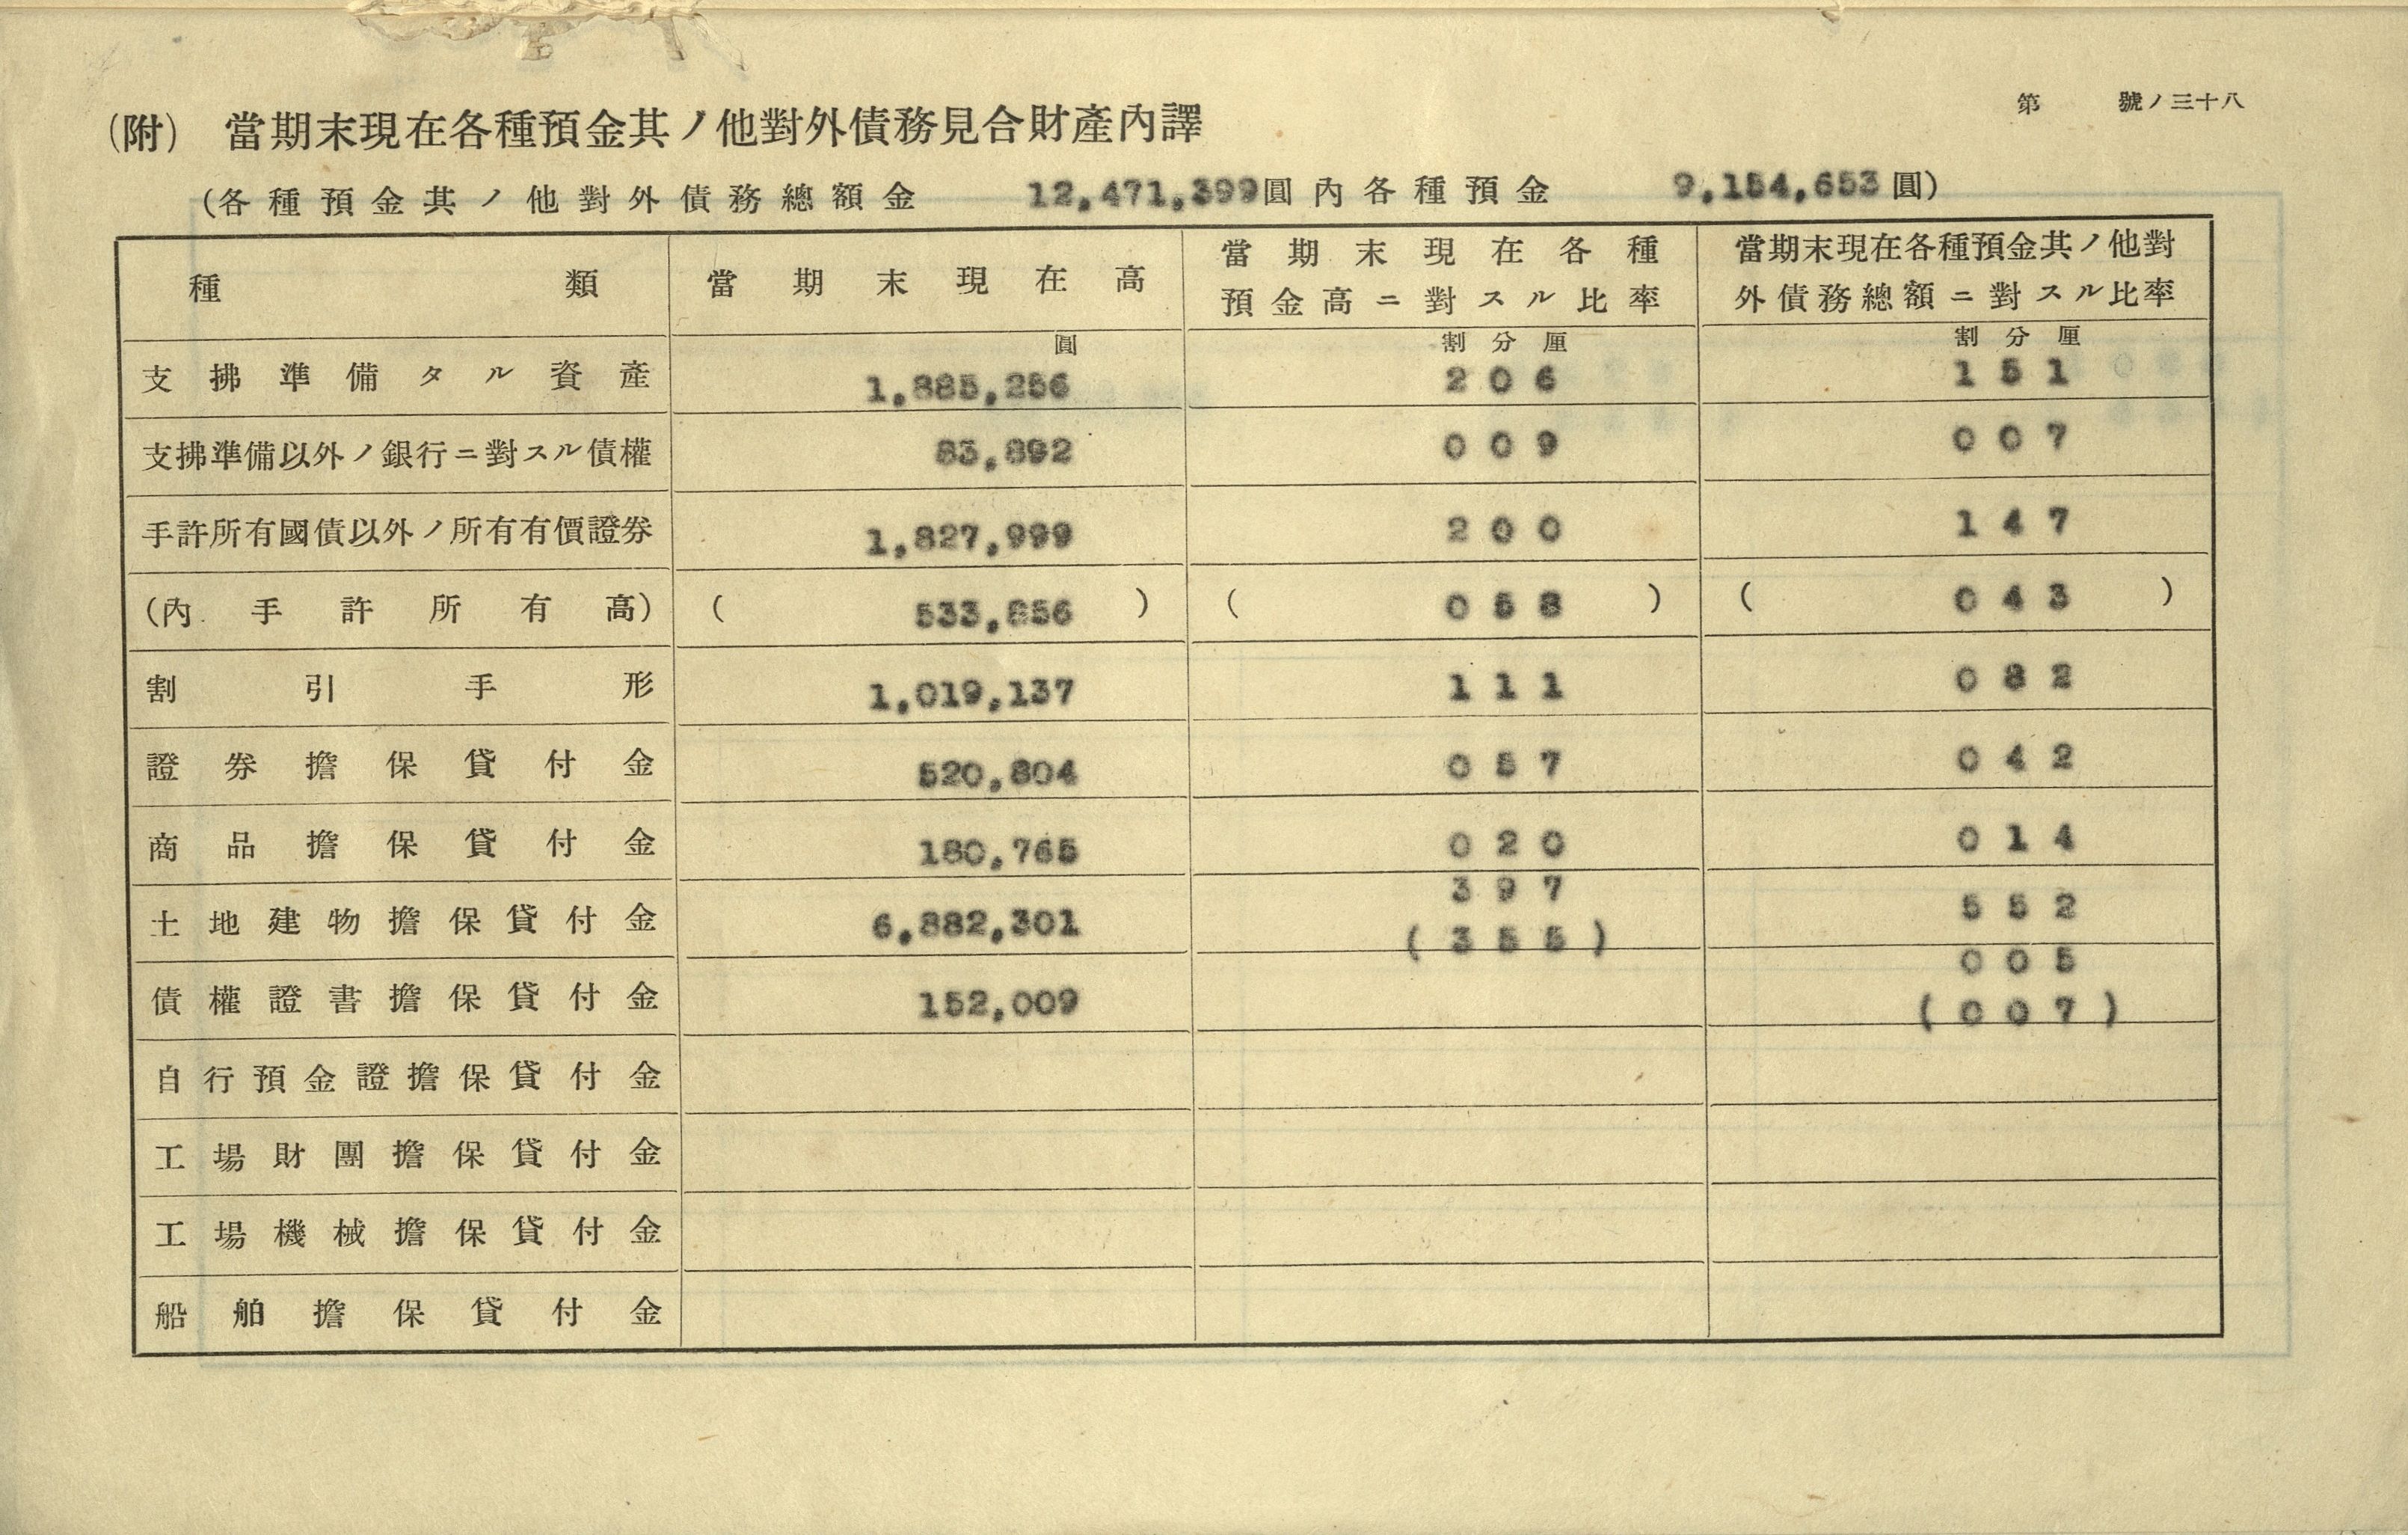 第　　號ノ三十八
（附）　當期末現在各種預金其ノ他對外債務見合財產內譯
（各種預金其ノ他對外債務總額金 12,471,399圓內各種預金 9,154,653圓）
種類　當期末現在高　當期末現在各種預金高ニ對スル比率　當期末現在各種預金其ノ他對外債務總額ニ對スル比率
圓　割分厘　割分厘
支拂準備タル資產　1,885,256　206　151
支拂準備以外ノ銀行ニ對スル債權　83,892　009　007
手許所有國債以外ノ所有有價證券　1,827,999　200　147
（內手許所有高）　（533,856）　（058）　（043）
割引手形　1,019,137　111　082
證券擔保貸付金　520,804　057　042
商品擔保貸付金　180,765　020　014
土地建物擔保貸付金　6,882,301　397　(355)　552
債權證書擔保貸付金　152,009　005　(007)
自行預金證擔保貸付金
工場財團擔保貸付金
工場機械擔保貸付金
船舶擔保貸付金